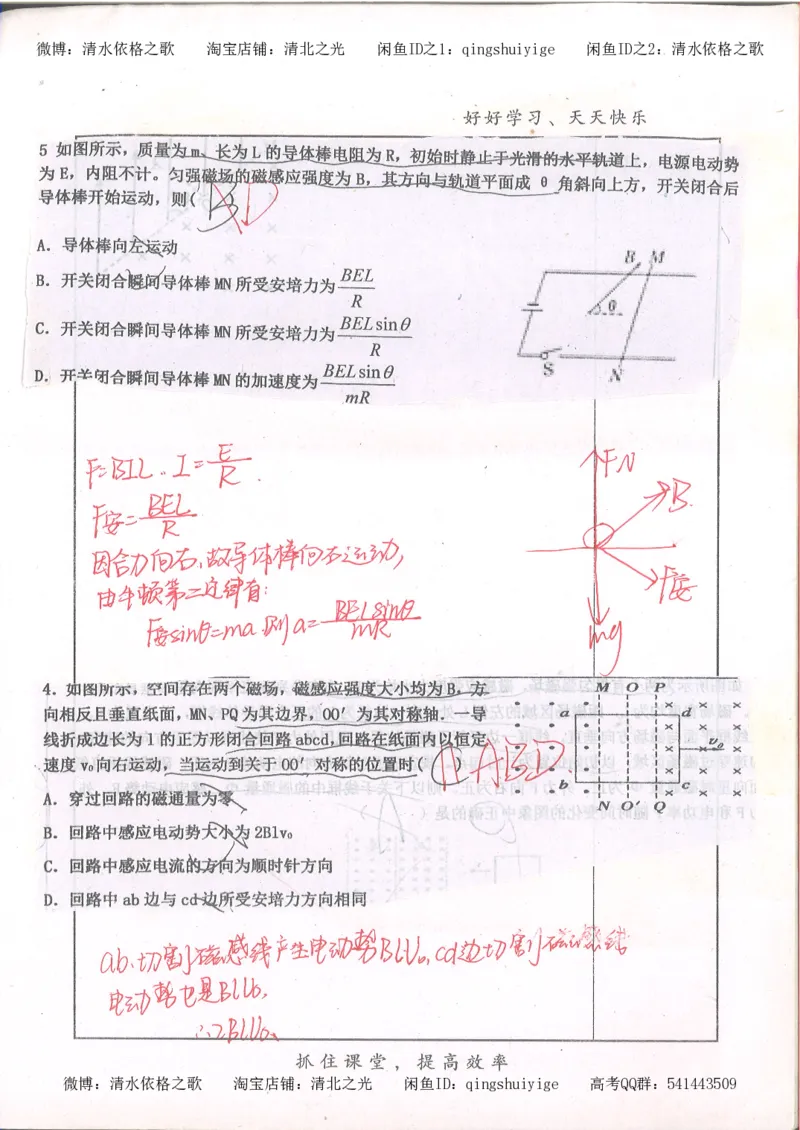 微博：清水依格之歌 淘宝店铺：清北之光 闲鱼ID之1：qingshuiyige 闲鱼ID之2：清水依格之歌
好好学习、天天快乐
5 如图所示，质量为m、长为L的导体棒电阻为R，初始时静止于光滑的水平轨道上，电源电动势
为E，内阻不计。匀强磁场的磁感应强度为B，其方向与轨道平面成 θ 角斜向上方，开关闭合后
导体棒开始运动，则( BD
A．导体棒向左运动
B．开关闭合瞬间导体棒MN所受安培力为 BEL/R
C．开关闭合瞬间导体棒MN所受安培力为 BELsinθ/R
D．开关闭合瞬间导体棒MN的加速度为 BELsinθ/mR
B M
θ
S N
F=BIL．I=E/R．
F安=BEL/R
因合力向右，故导体棒向右运动，
由牛顿第二定律有：
F安sinθ=ma 则a=BELsinθ/mR
FN
B
F安
mg
4．如图所示，空间存在两个磁场，磁感应强度大小均为B，方
向相反且垂直纸面，MN、PQ为其边界，OO′为其对称轴．一导
线折成边长为l的正方形闭合回路abcd，回路在纸面内以恒定
速度v₀向右运动，当运动到关于OO′对称的位置时( ABD
A．穿过回路的磁通量为零
B．回路中感应电动势大小为2Blv₀
C．回路中感应电流的方向为顺时针方向
D．回路中ab边与cd边所受安培力方向相同
M O P
a d
v₀
b c
N O′ Q
ab切割磁感线产生电动势BLV₀，cd边切割磁感线
电动势也是BLV₀，
∴2BLV₀、
抓住课堂，提高效率
微博：清水依格之歌 淘宝店铺：清北之光 闲鱼ID：qingshuiyige 高考QQ群：541443509